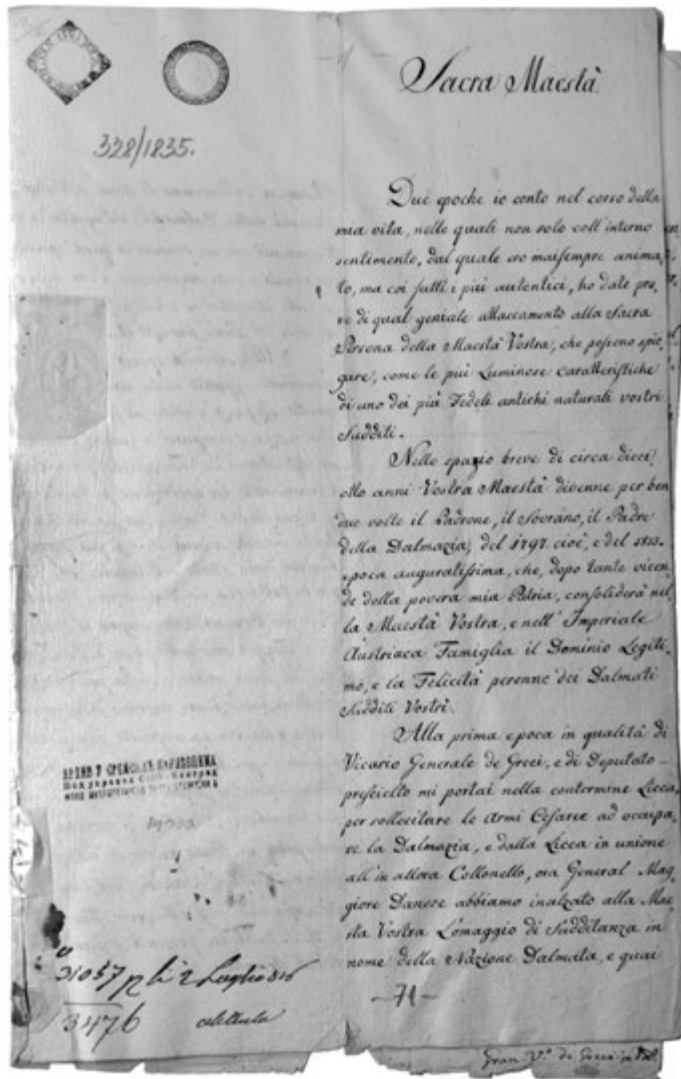 328/1835.
Sacra Maestà
Due epoche io conto nel corso della
mia vita, nelle quali non solo coll'interno
sentimento, dal quale ero maisempre anima,
to, ma coi fatti i più autentici, ho date pro,
ve di qual geniale attaccamento alla Sacra
Persona della Maestà Vostra, che possono spie,
gare, come le più Luminose caratteristiche
di uno dei più Fedeli antichi naturali vostri
Sudditi.
Nello spazio breve di circa dieci,
otto anni Vostra Maestà divenne per ben
due volte il Padrone, il Sovrano, il Padre
della Dalmazia, del 1797 cioè, e del 1813.
epoca auguratissima, che, dopo tante vicen,
de della povera mia Patria, consoliderà nel,
la Maestà Vostra, e nell'Imperiale
Austriaca Famiglia il Dominio Legiti,
mo, e la Felicità perenne dei Dalmati
Sudditi Vostri.
Alla prima epoca in qualità di
Vicario Generale de Greci, e di Deputato
prescielto mi portai nella contermine Licca,
per sollecitare le Armi Cesaree ad occupa,
re la Dalmazia, e dalla Licca in unione
all'in allora Collonello, ora General Mag,
giore Danese abbiamo inalzato alla Mae,
sta Vostra L'omaggio di Sudditanza in
nome della Nazione Dalmata, e quai
-71-
31057 li 2 Luglio 816
3476
Gran V.º de Greci in